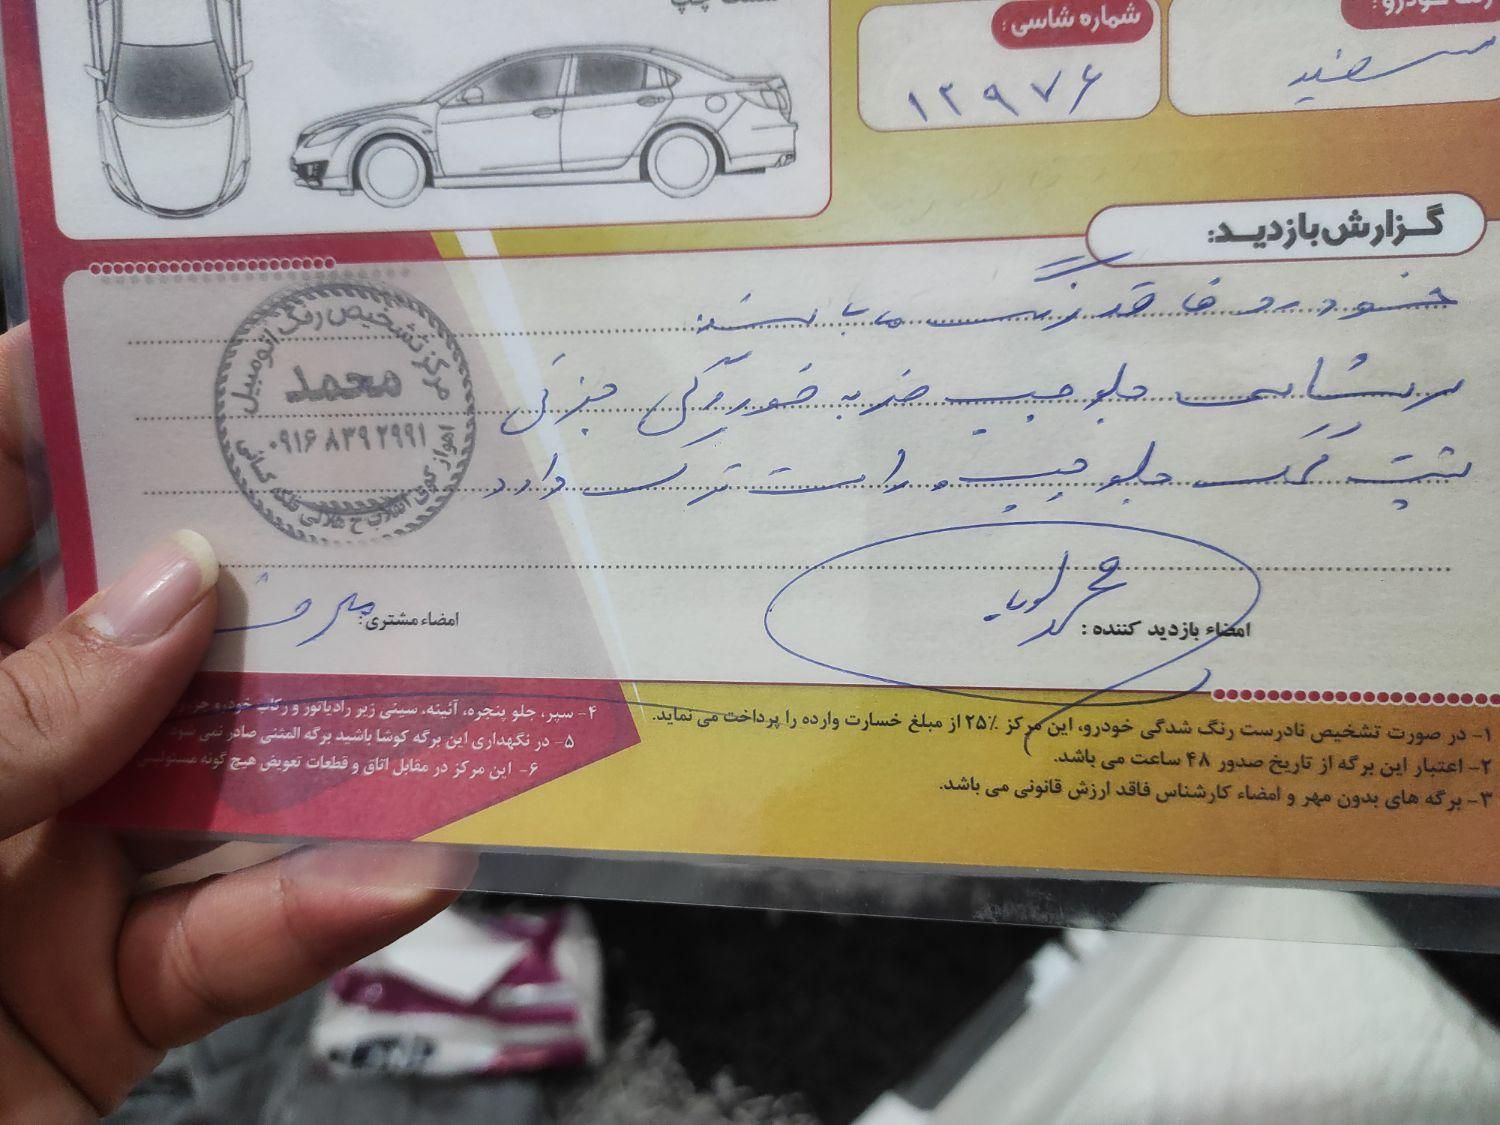 شماره شاسی:
۱۲۹۷۶
سفید
گزارش بازدید:
خودرو فاقد رنگ میباشد
سرشاسی جلو چپ ضربه خوردگی جزئی
پشت گلگیر جلو چپ و راست ترک دارد
مرکز تشخیص رنگ اتومبیل
محمد
۰۹۱۶ ۸۳۹ ۲۹۹۱
امضاء بازدید کننده :
امضاء مشتری:
۱- در صورت تشخیص نادرست رنگ شدگی خودرو، این مرکز ۲۵٪ از مبلغ خسارت وارده را پرداخت می نماید.
۲- اعتبار این برگه از تاریخ صدور ۴۸ ساعت می باشد.
۳- برگه های بدون مهر و امضاء کارشناس فاقد ارزش قانونی می باشد.
۴- سپر، جلو پنجره، آئینه، سینی زیر رادیاتور و رکاب خودرو
۵- در نگهداری این برگه کوشا باشید برگه المثنی صادر نمی شود
۶- این مرکز در مقابل اتاق و قطعات تعویض هیچ گونه